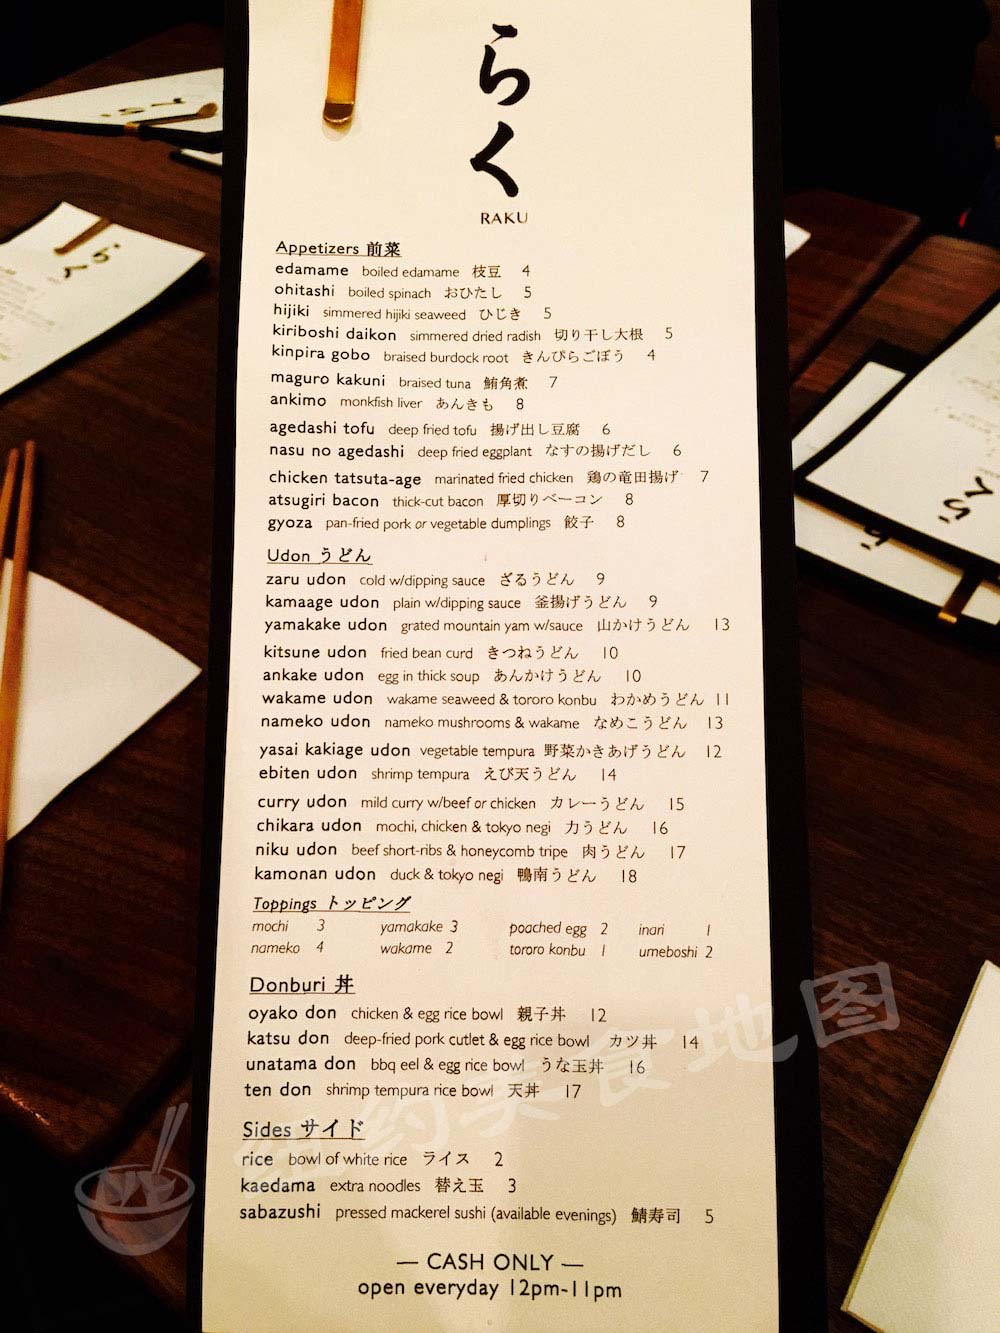 らく
RAKU
Appetizers 前菜
edamame boiled edamame 枝豆 4
ohitashi boiled spinach おひたし 5
hijiki simmered hijiki seaweed ひじき 5
kiriboshi daikon simmered dried radish 切り干し大根 5
kinpira gobo braised burdock root きんぴらごぼう 4
maguro kakuni braised tuna 鮪角煮 7
ankimo monkfish liver あんきも 8
agedashi tofu deep fried tofu 揚げ出し豆腐 6
nasu no agedashi deep fried eggplant なすの揚げだし 6
chicken tatsuta-age marinated fried chicken 鶏の竜田揚げ 7
atsugiri bacon thick-cut bacon 厚切りベーコン 8
gyoza pan-fried pork or vegetable dumplings 餃子 8
Udon うどん
zaru udon cold w/dipping sauce ざるうどん 9
kamaage udon plain w/dipping sauce 釜揚げうどん 9
yamakake udon grated mountain yam w/sauce 山かけうどん 13
kitsune udon fried bean curd きつねうどん 10
ankake udon egg in thick soup あんかけうどん 10
wakame udon wakame seaweed & tororo konbu わかめうどん 11
nameko udon nameko mushrooms & wakame なめこうどん 13
yasai kakiage udon vegetable tempura 野菜かきあげうどん 12
ebiten udon shrimp tempura えび天うどん 14
curry udon mild curry w/beef or chicken カレーうどん 15
chikara udon mochi, chicken & tokyo negi 力うどん 16
niku udon beef short-ribs & honeycomb tripe 肉うどん 17
kamonan udon duck & tokyo negi 鴨南うどん 18
Toppings トッピング
mochi 3 yamakake 3 poached egg 2 inari 1
nameko 4 wakame 2 tororo konbu 1 umeboshi 2
Donburi 丼
oyako don chicken & egg rice bowl 親子丼 12
katsu don deep-fried pork cutlet & egg rice bowl カツ丼 14
unatama don bbq eel & egg rice bowl うな玉丼 16
ten don shrimp tempura rice bowl 天丼 17
Sides サイド
rice bowl of white rice ライス 2
kaedama extra noodles 替え玉 3
sabazushi pressed mackerel sushi (available evenings) 鯖寿司 5
— CASH ONLY —
open everyday 12pm-11pm
纽约美食地图
らく